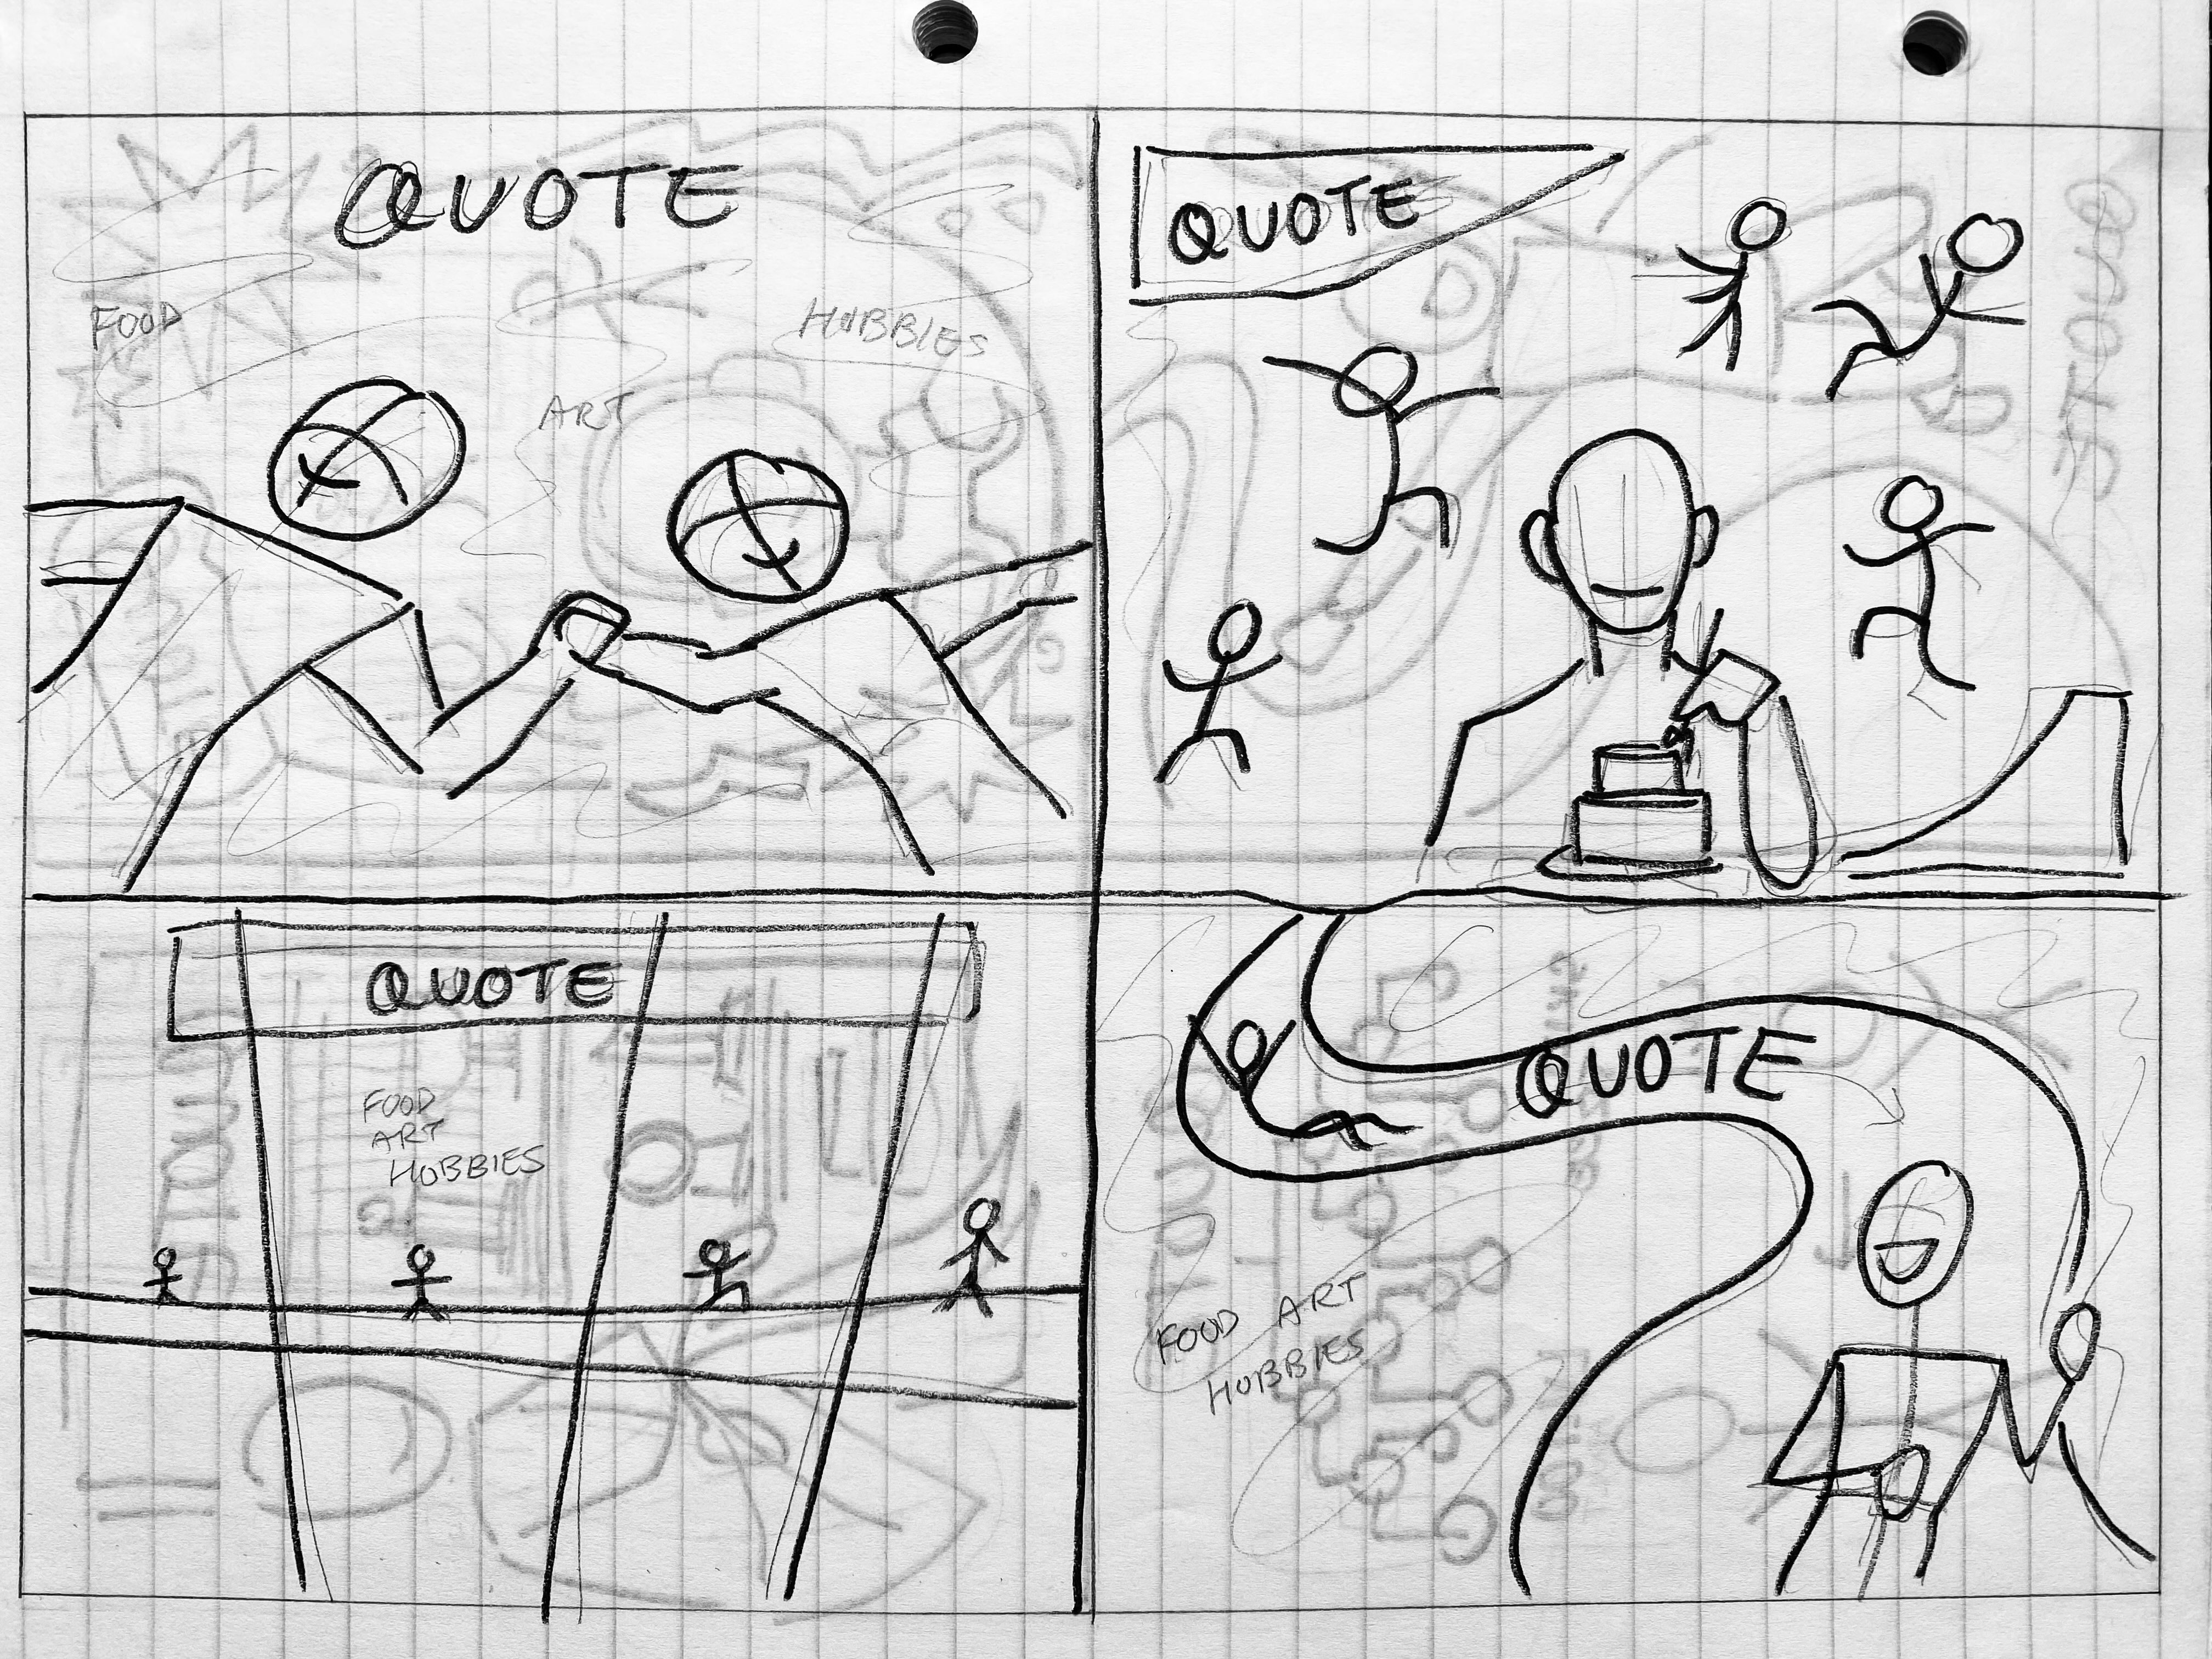 QUOTE
FOOD
HOBBIES
ART
QUOTE
QUOTE
FOOD
ART
HOBBIES
QUOTE
FOOD ART
HOBBIES